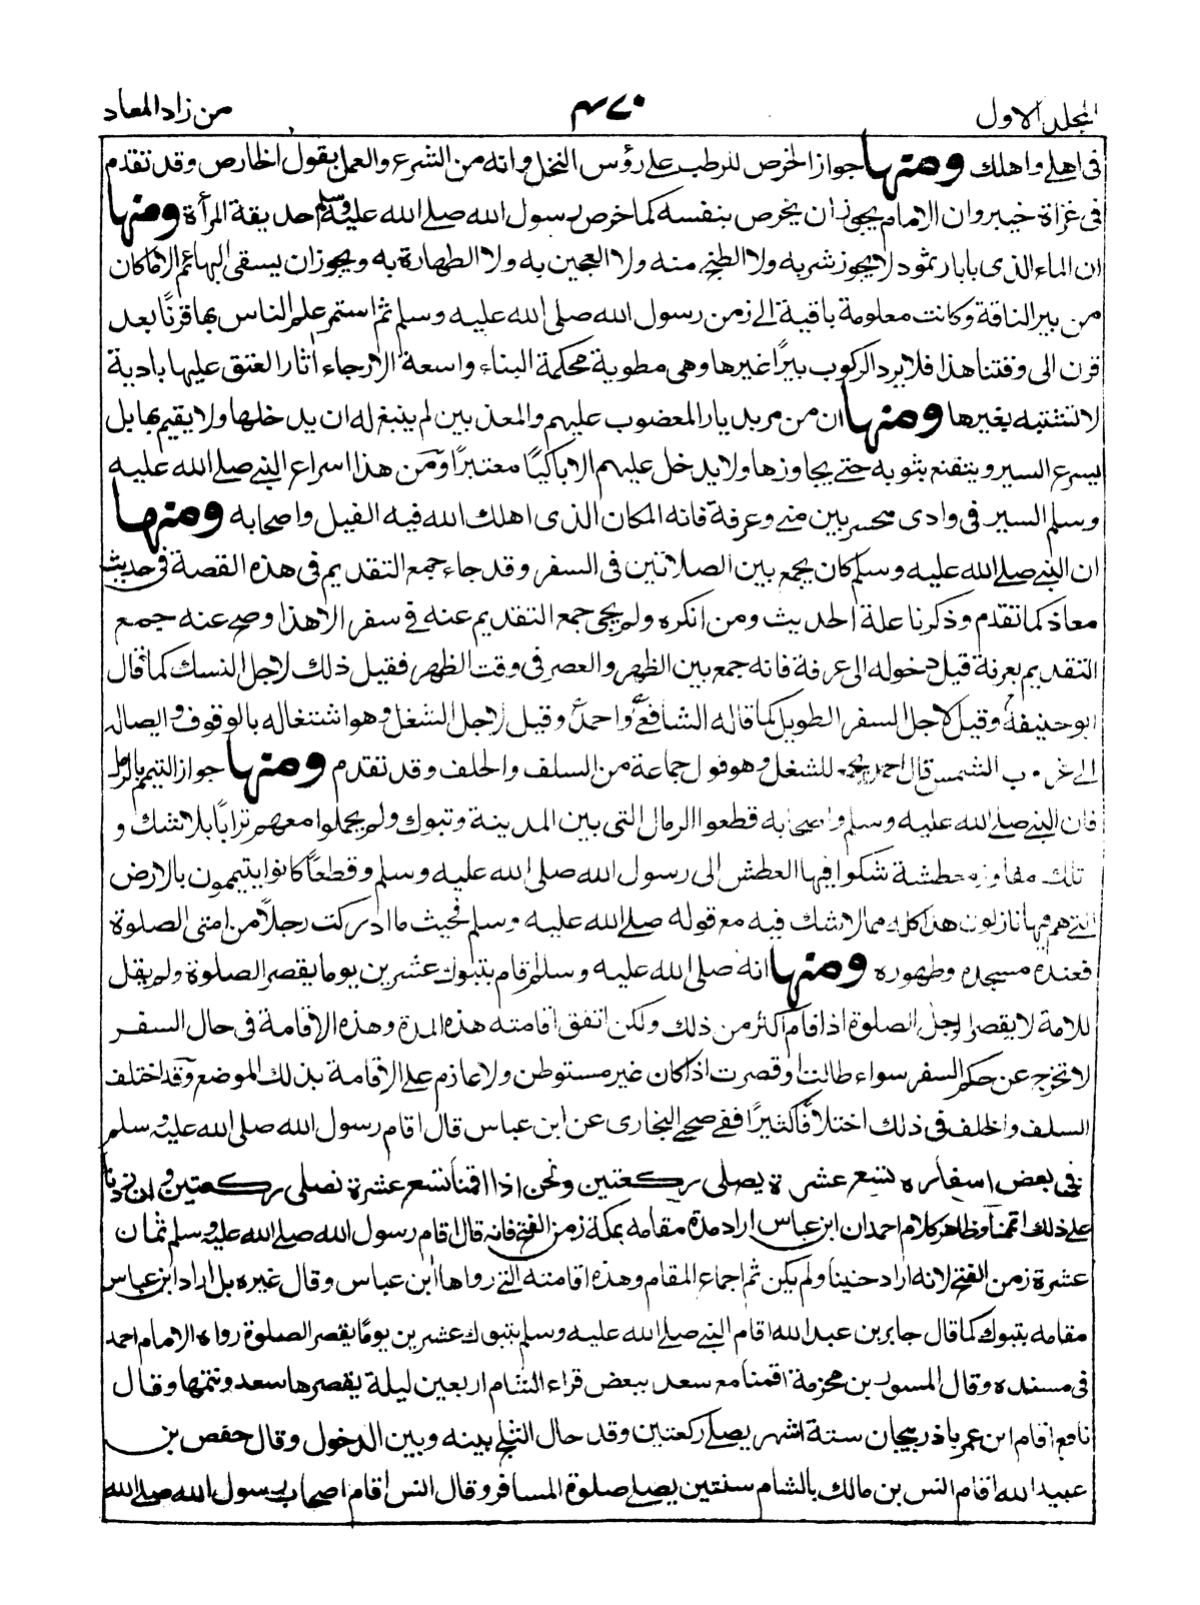 المجلد الاول
٤٧٠
من زاد المعاد
فى اهلى واهلك ومنها جواز الخرص للرطب على رؤس النخل وانه من الشرع والعمل بقول الخارص وقد تقدم
فى غزاة خيبر وان الامام يجوز ان يخرص بنفسه كما خرص رسول الله صلى الله عليه وسلم حديقة المرأة ومنها
ان الماء الذى بابار ثمود لا يجوز شربه ولا الطبخ منه ولا العجين به ولا الطهارة به ويجوز ان يسقى البهائم الا ما كان
من بير الناقة وكانت معلومة باقية الى زمن رسول الله صلى الله عليه وسلم ثم استمر علم الناس بها قرنًا بعد
قرن الى وقتنا هذا فلا يرد الركوب بيرًا غيرها وهى مطوية محكمة البناء واسعة الارجاء اثار العتق عليها بادية
لا تشتبه بغيرها ومنها ان من مر بديار المغضوب عليهم والمعذبين لم ينبغ له ان يدخلها ولا يقيم بها بل
يسرع السير ويتقنع بثوبه حتى يجاوزها ولا يدخل عليهم الا باكيًا معتبرًا ومن هذا اسراع النبى صلى الله عليه
وسلم السير فى وادى محسر بين منى وعرفة فانه المكان الذى اهلك الله فيه الفيل واصحابه ومنها
ان النبى صلى الله عليه وسلم كان يجمع بين الصلاتين فى السفر وقد جاء جمع التقديم فى هذه القصة فى حديث
معاذ كما تقدم وذكرنا علة الحديث ومن انكره ولم يجئ جمع التقديم عنه فى سفر الا هذا وصح عنه جمع
التقديم بعرنة قبل دخوله الى عرفة فانه جمع بين الظهر والعصر فى وقت الظهر فقيل ذلك لاجل النسك كما قال
ابو حنيفة وقيل لاجل السفر الطويل كما قاله الشافعى واحمد وقيل لاجل الشغل وهو اشتغاله بالوقوف واتصاله
الى غروب الشمس قال احمد يجمع للشغل وهو قول جماعة من السلف والخلف وقد تقدم ومنها جواز التيمم بالرمل
فان النبى صلى الله عليه وسلم واصحابه قطعوا الرمال التى بين المدينة وتبوك ولم يحملوا معهم ترابًا بلا شك و
تلك مفاوز معطشة شكوا فيها العطش الى رسول الله صلى الله عليه وسلم وقطعًا كانوا يتيممون بالارض
التى هم فيها نازلون هذا كله مما لا شك فيه مع قوله صلى الله عليه وسلم فحيث ما ادركت رجلًا من امتى الصلوة
فعنده مسجده وطهوره ومنها انه صلى الله عليه وسلم قام بتبوك عشرين يوما يقصر الصلوة ولم يقل
للامة لا يقصر الرجل الصلوة اذا اقام اكثر من ذلك ولكن اتفق اقامته هذه المدة وهذه الاقامة فى حال السفر
لا تخرج عن حكم السفر سواء طالت او قصرت اذا كان غير مستوطن ولا عازم على الاقامة بذلك الموضع وقد اختلف
السلف والخلف فى ذلك اختلافًا كثيرًا ففى صحيح البخارى عن ابن عباس قال اقام رسول الله صلى الله عليه وسلم
فى بعض اسفاره تسع عشرة يصلى ركعتين ونحن اذا اقمنا تسع عشرة نصلى ركعتين وان زدنا
على ذلك اتمنا وظاهر كلام احمد ان ابن عباس اراد مدة مقامه بمكة زمن الفتح فانه قال اقام رسول الله صلى الله عليه وسلم ثمان
عشرة زمن الفتح لانه اراد حنينا ولم يكن ثم اجماع المقام وهذه اقامته التى رواها ابن عباس وقال غيره بل اراد ابن عباس
مقامه بتبوك كما قال جابر بن عبد الله اقام النبى صلى الله عليه وسلم بتبوك عشرين يومًا يقصر الصلوة رواه الامام احمد
فى مسنده وقال المسور بن مخرمة اقمنا مع سعد ببعض قراء الشام اربعين ليلة يقصرها سعد ونتمها وقال
نافع اقام ابن عمر باذربيجان ستة اشهر يصلى ركعتين وقد حال الثلج بينه وبين الدخول وقال حفص بن
عبيد الله اقام انس بن مالك بالشام سنتين يصلى صلوة المسافر وقال انس اقام اصحاب رسول الله صلى الله